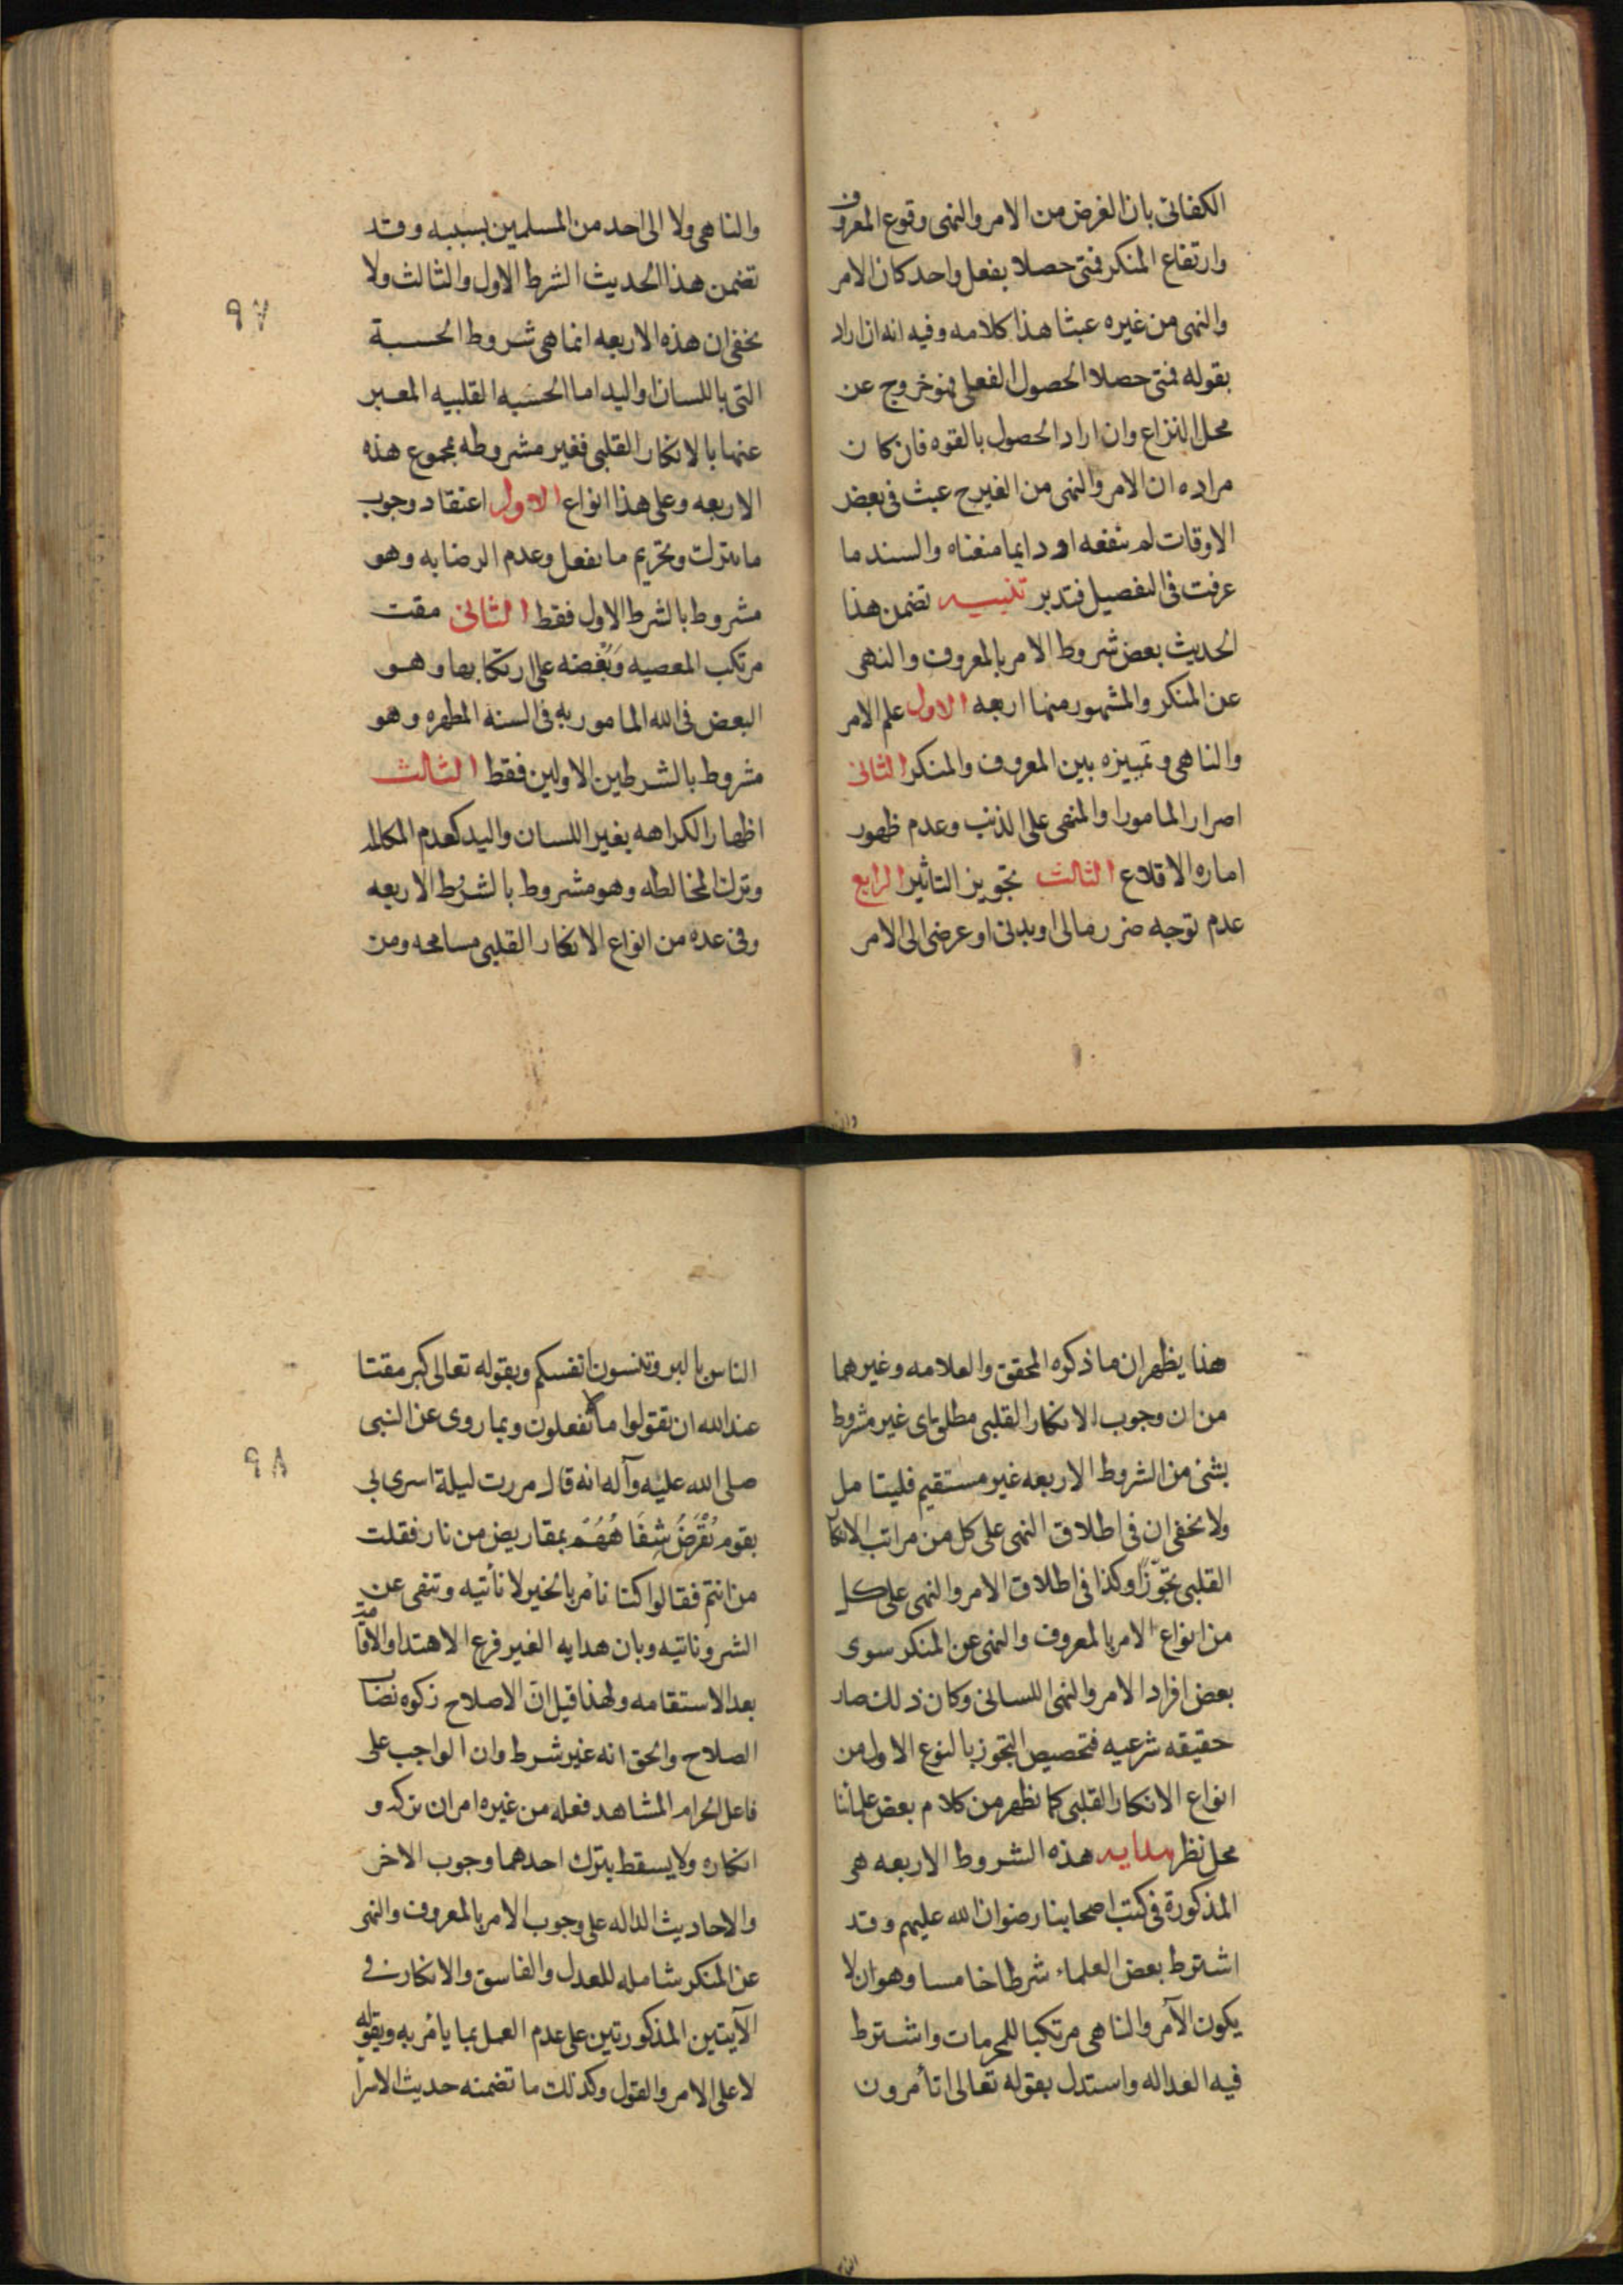 الكفائى بان الغرض من الامر والنهى وقوع المعروف
وارتفاع المنكر فمتى حصلا بفعل واحد كان الامر
والنهى من غيره عبثا هذا كلامه وفيه انه ان اراد
بقوله فمتى حصلا الحصول الفعلى فهو خروج عن
محل النزاع وان اراد الحصول بالقوه فان كان
مراده ان الامر والنهى من الغير ح عبث فى بعض
الاوقات لم ينفعه او دايما منعناه والسند ما
عرفت فى التفصيل فتدبر تنبيه تضمن هذا
الحديث بعض شروط الامر بالمعروف والنهى
عن المنكر والمشهور منها اربعه الاول علم الامر
والناهى وتمييزه بين المعروف والمنكر الثانى
اصرار المامور او المنهى على الذنب وعدم ظهور
اماره الاقلاع الثالث تجويز التاثير الرابع
عدم توجه ضرر مالى او بدنى او عرضى الى الامر
والناهى ولا الى احد من المسلمين بسببه وقد
تضمن هذا الحديث الشرط الاول والثالث ولا
يخفى ان هذه الاربعه انما هى شروط الحسبة
التى باللسان واليد اما الحسبه القلبيه المعبر
عنها بالانكار القلبى فغير مشروطه بمجموع هذه
الاربعه وعلى هذا انواع الاول اعتقاد وجوب
ما يترك وتحريم ما يفعل وعدم الرضا به وهو
مشروط بالشرط الاول فقط الثانى مقت
مرتكب المعصيه وبغضه على ارتكابها وهو
البعض فى الله المامور به فى السنه المطهره وهو
مشروط بالشرطين الاولين فقط الثالث
اظهار الكراهه بغير اللسان واليد كعدم المكالمه
وترك المخالطه وهو مشروط بالشرط الاربعه
وفى عده من انواع الانكار القلبى مسامحه ومن
٩٧
هذا يظهر ان ما ذكره المحقق والعلامه وغيرهما
من ان وجوب الانكار القلبى مطلق اى غير مشروط
بشئ من الشروط الاربعه غير مستقيم فليتامل
ولا يخفى ان فى اطلاق النهى على كل من مراتب الانكار
القلبى تجوّزًا وكذا فى اطلاق الامر والنهى على كل
من انواع الامر بالمعروف والنهى عن المنكر سوى
بعض افراد الامر والنهى اللسانى وكان ذلك صار
حقيقه شرعيه فتخصيص التجوز بالنوع الاول من
انواع الانكار القلبى كما يظهر من كلام بعض علمائنا
محل نظر هدايه هذه الشروط الاربعه هى
المذكورة فى كتب اصحابنا رضوان الله عليهم وقد
اشترط بعض العلماء شرطا خامسا وهو ان لا
يكون الآمر والناهى مرتكبا للمحرمات واشترط
فيه العداله واستدل بقوله تعالى اتأمرون
الناس بالبر وتنسون انفسكم وبقوله تعالى كبر مقتا
عند الله ان تقولوا ما لا تفعلون وبما روى عن النبى
صلى الله عليه وآله انه قال مررت ليلة اسرى بي
بقوم تُقْرَضُ شِفَاهُهُم بمقاريض من نار فقلت
من انتم فقالوا كنا نأمر بالخير ولا نأتيه وننهى عن
الشر وناتيه وبان هدايه الغير فرع الاهتدا والاقامه
بعد الاستقامه ولهذا قيل ان الاصلاح زكوه نصاب
الصلاح والحق انه غير شرط وان الواجب على
فاعل الحرام المشاهد فعله من غيره امران تركه و
انكاره ولا يسقط بترك احدهما وجوب الاخر
والاحاديث الداله على وجوب الامر بالمعروف والنهى
عن المنكر شامله للعدل والفاسق والانكار فى
الآيتين المذكورتين على عدم العمل بما يأمر به ويقوله
لا على الامر والقول وكذلك ما تضمنه حديث الاسرا
٩٨